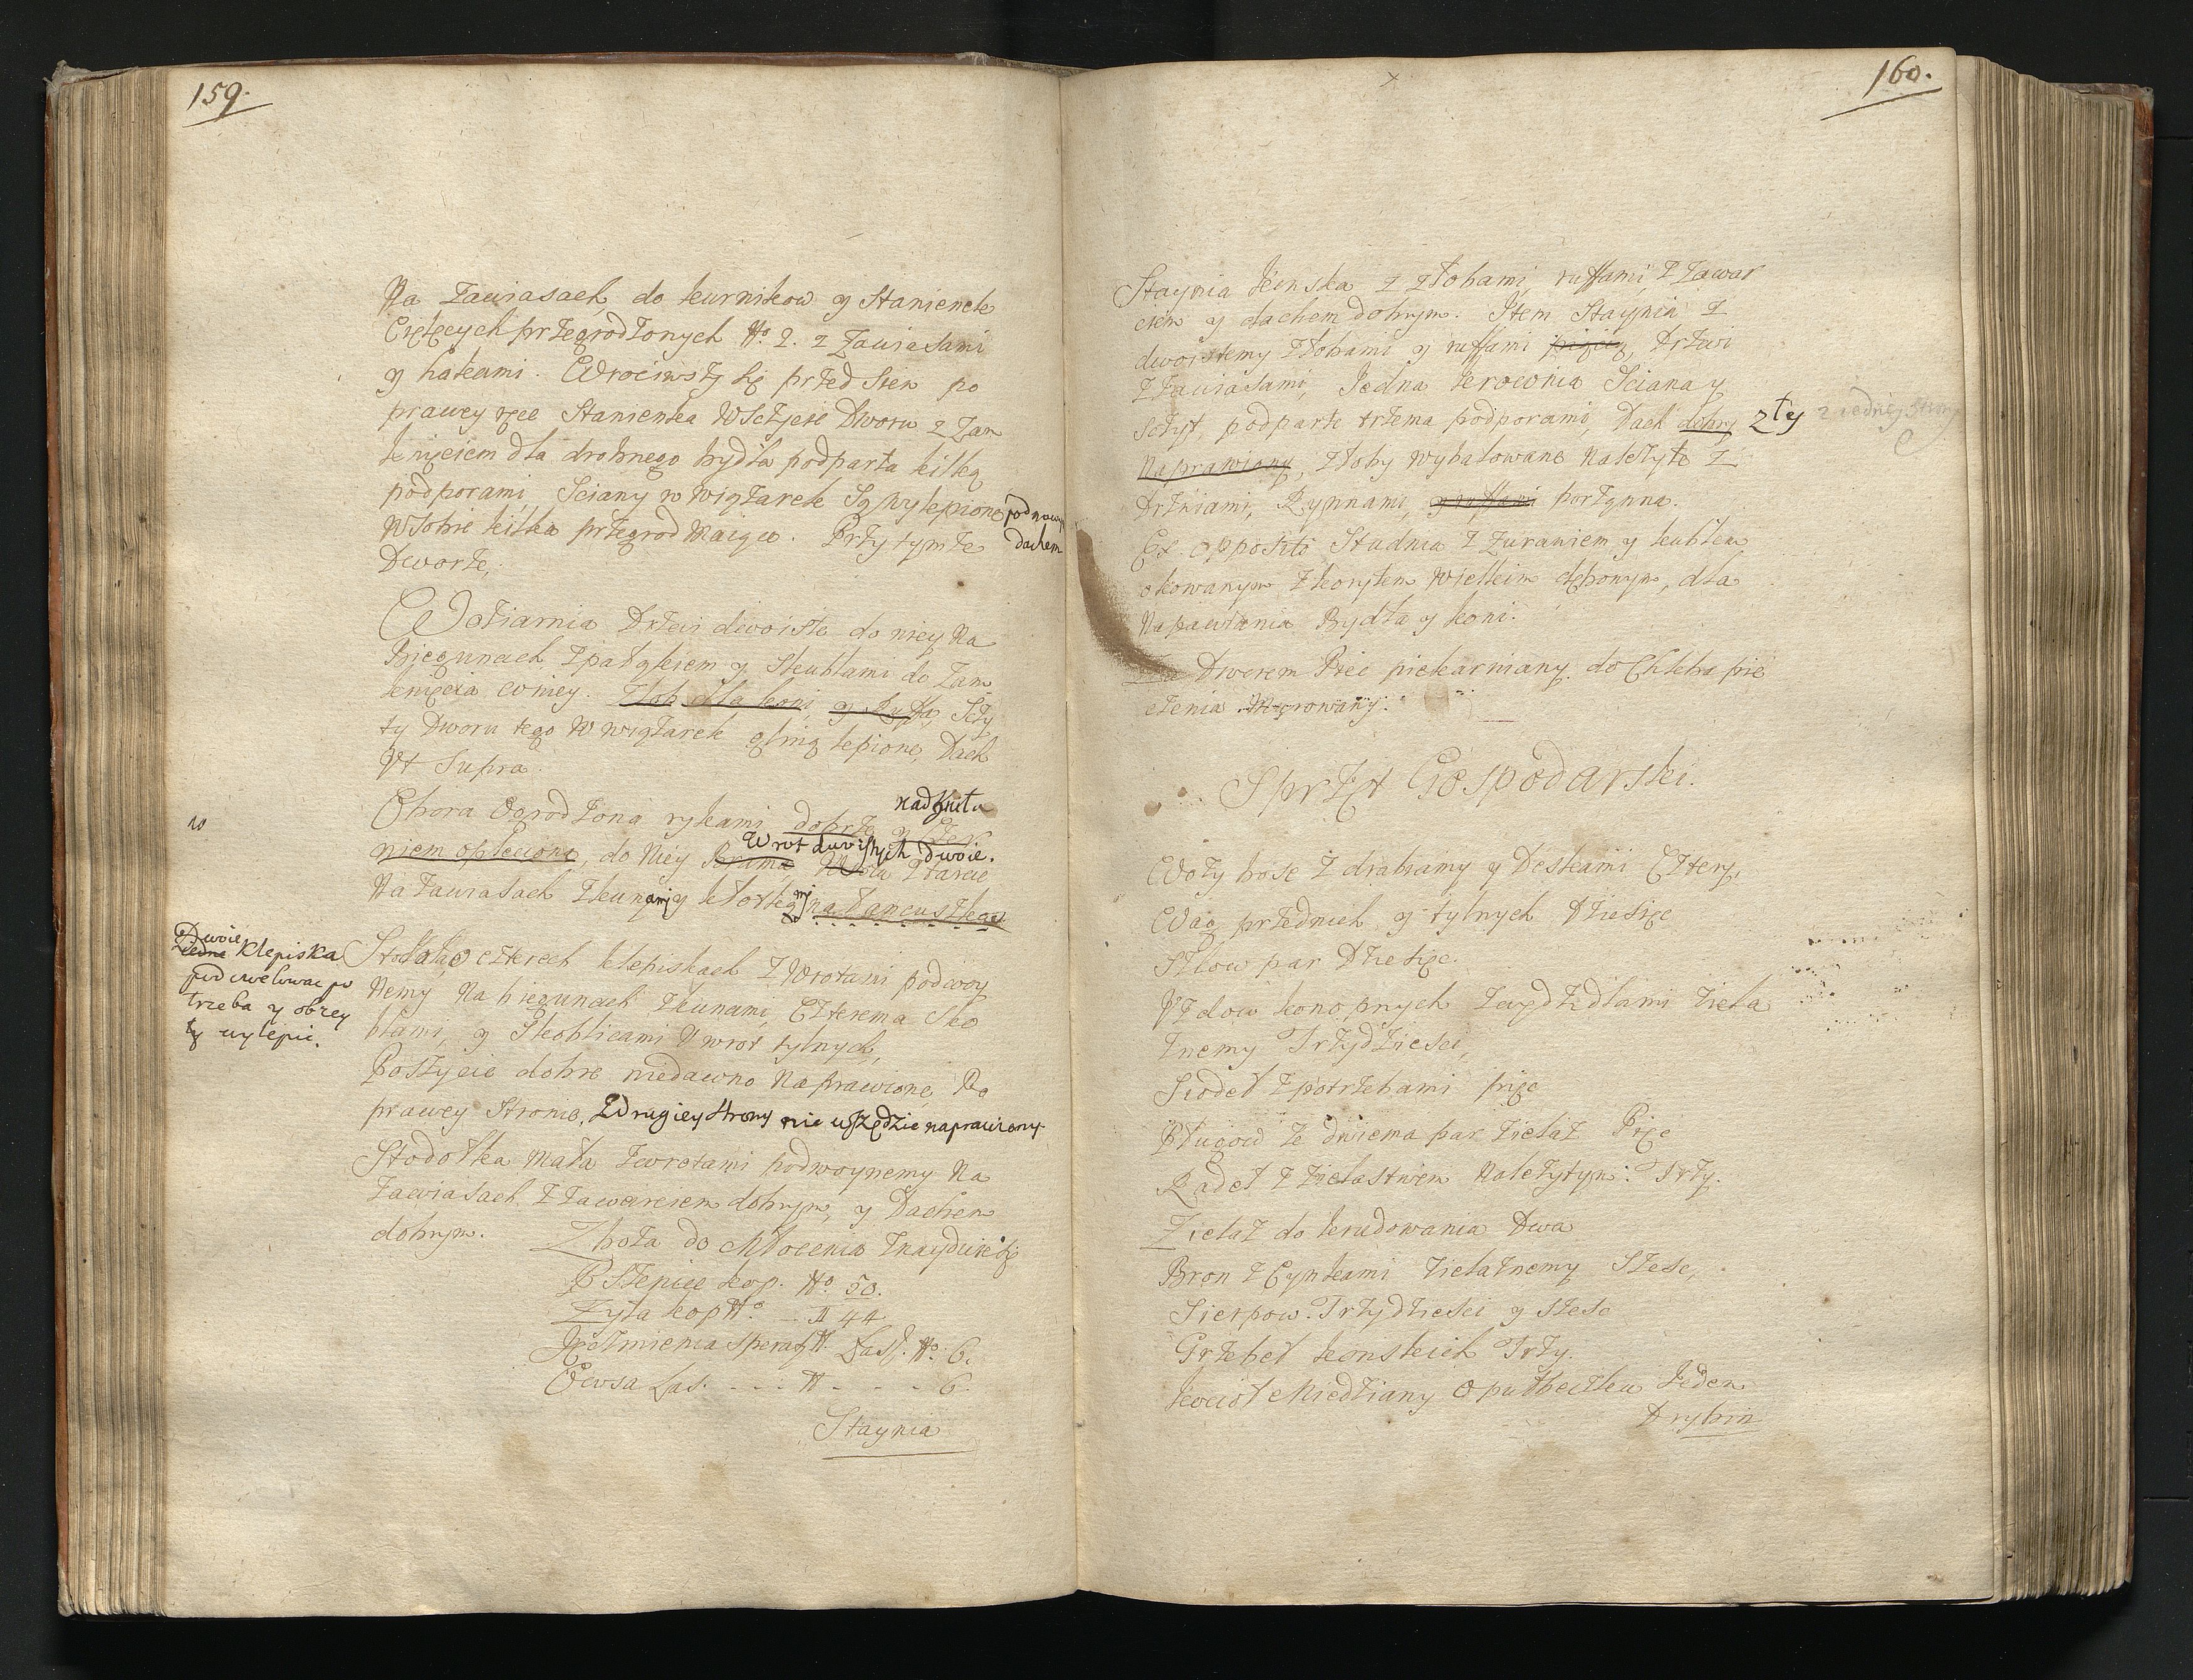 159.
Na Zawiasach, do kurnikow y Stanienek
Cielęcych przegrodzonych No. 2. z Zawiasami
y hakami. Wrociwszy się przed Sien po
prawey ręce Stanienka W Szczycie Dworu z Zam
knięciem dla drobnego bydła podparta kilką
podporami, Sciany w Wiązarek Są Wylepione pod nowym
W Sobie kilka przegrod Maiąca. Przy tymże dachem
Dworze,
Woziarnia Drzwi dwoiste do niey Na
Biegunach, z pałąkiem y Skublami do Zam
knięcia w niey. Złob dla koni y Ruffa, Sczy
ty Dworu tego W wiązarek gliną lepione, Dach
Vt Supra
nadgniła
Obora Ogrodzona rykami, dobrze y Cier
niem opleciona, do Niey Brama Wrot dwoistych dwoie.
Na Zawiasach z kunami y klotkami na Lancuszkach
Dwoie
Jedne klepiska
Stodoła o czterech klepiskach z Wrotami podwoy
Nemy Na biegunach z kunami, Czterema Sko
trzeba y obrzey
blami, y Skoblicami V wrot tylnych,
ty wylepic.
Poszycie dobre niedawno Naprawione, Po
prawey Stronie, Z drugiey strony nie wszędzie naprawiony.
Stodołka mała z wrotami podwoynemy Na
Zawiasach z zawarciem dobrym, y Dachem
dobrym. Zboża do Młocenia znayduie się
Pszenice kop. No. 50.
Zyta kop No. 44
Jęczmienia Łasz. No. 6.
Owsa Łas. - - - - - - 6.
Staynia
160.
Staynia konska z złobami, ruffami z Zawar
ciem y dachem dobrym. Item Staynia z
dwoistemy złobami y ruffami Drzwi
z Zawiasami, Jedna Sciana y
Sczyt, podparte trzema podporami, Dach dobry zły z iedney strony
Naprawiony, złoby wybalowane Należyte z
Drzwiami, Rynnami, y ruffami porządne.
Ex opposito Studnia z Zurawiem y kublem
okowanym z korytem Wielkim dębonym, dla
Napawania Bydła y koni.
Za Dworem Piec piekarniany do Chleba pie
czenia Murowany.
Sprzęt Gospodarski.
Wozy bose z drabiamy y Deskami Cztery,
Wag przednich y tylnych Dziesięc
Szlow par Dziesięc.
Vzdow konopnych z wędzidłami żela
znemy Trzydziesci,
Siodeł z potrzebami pięc
Pługow ze dwiema par żelaz Pięc
Radeł z żelastwem Należytym Trzy.
Zielaz do krudowania Dwa
Bron z Cynkami żielaznemy Szesc,
Sierpow Trzydziesci y szesc
Grzebeł konskich Trzy.
kocioł Miedziany o puł beczku Jeden
Drybin